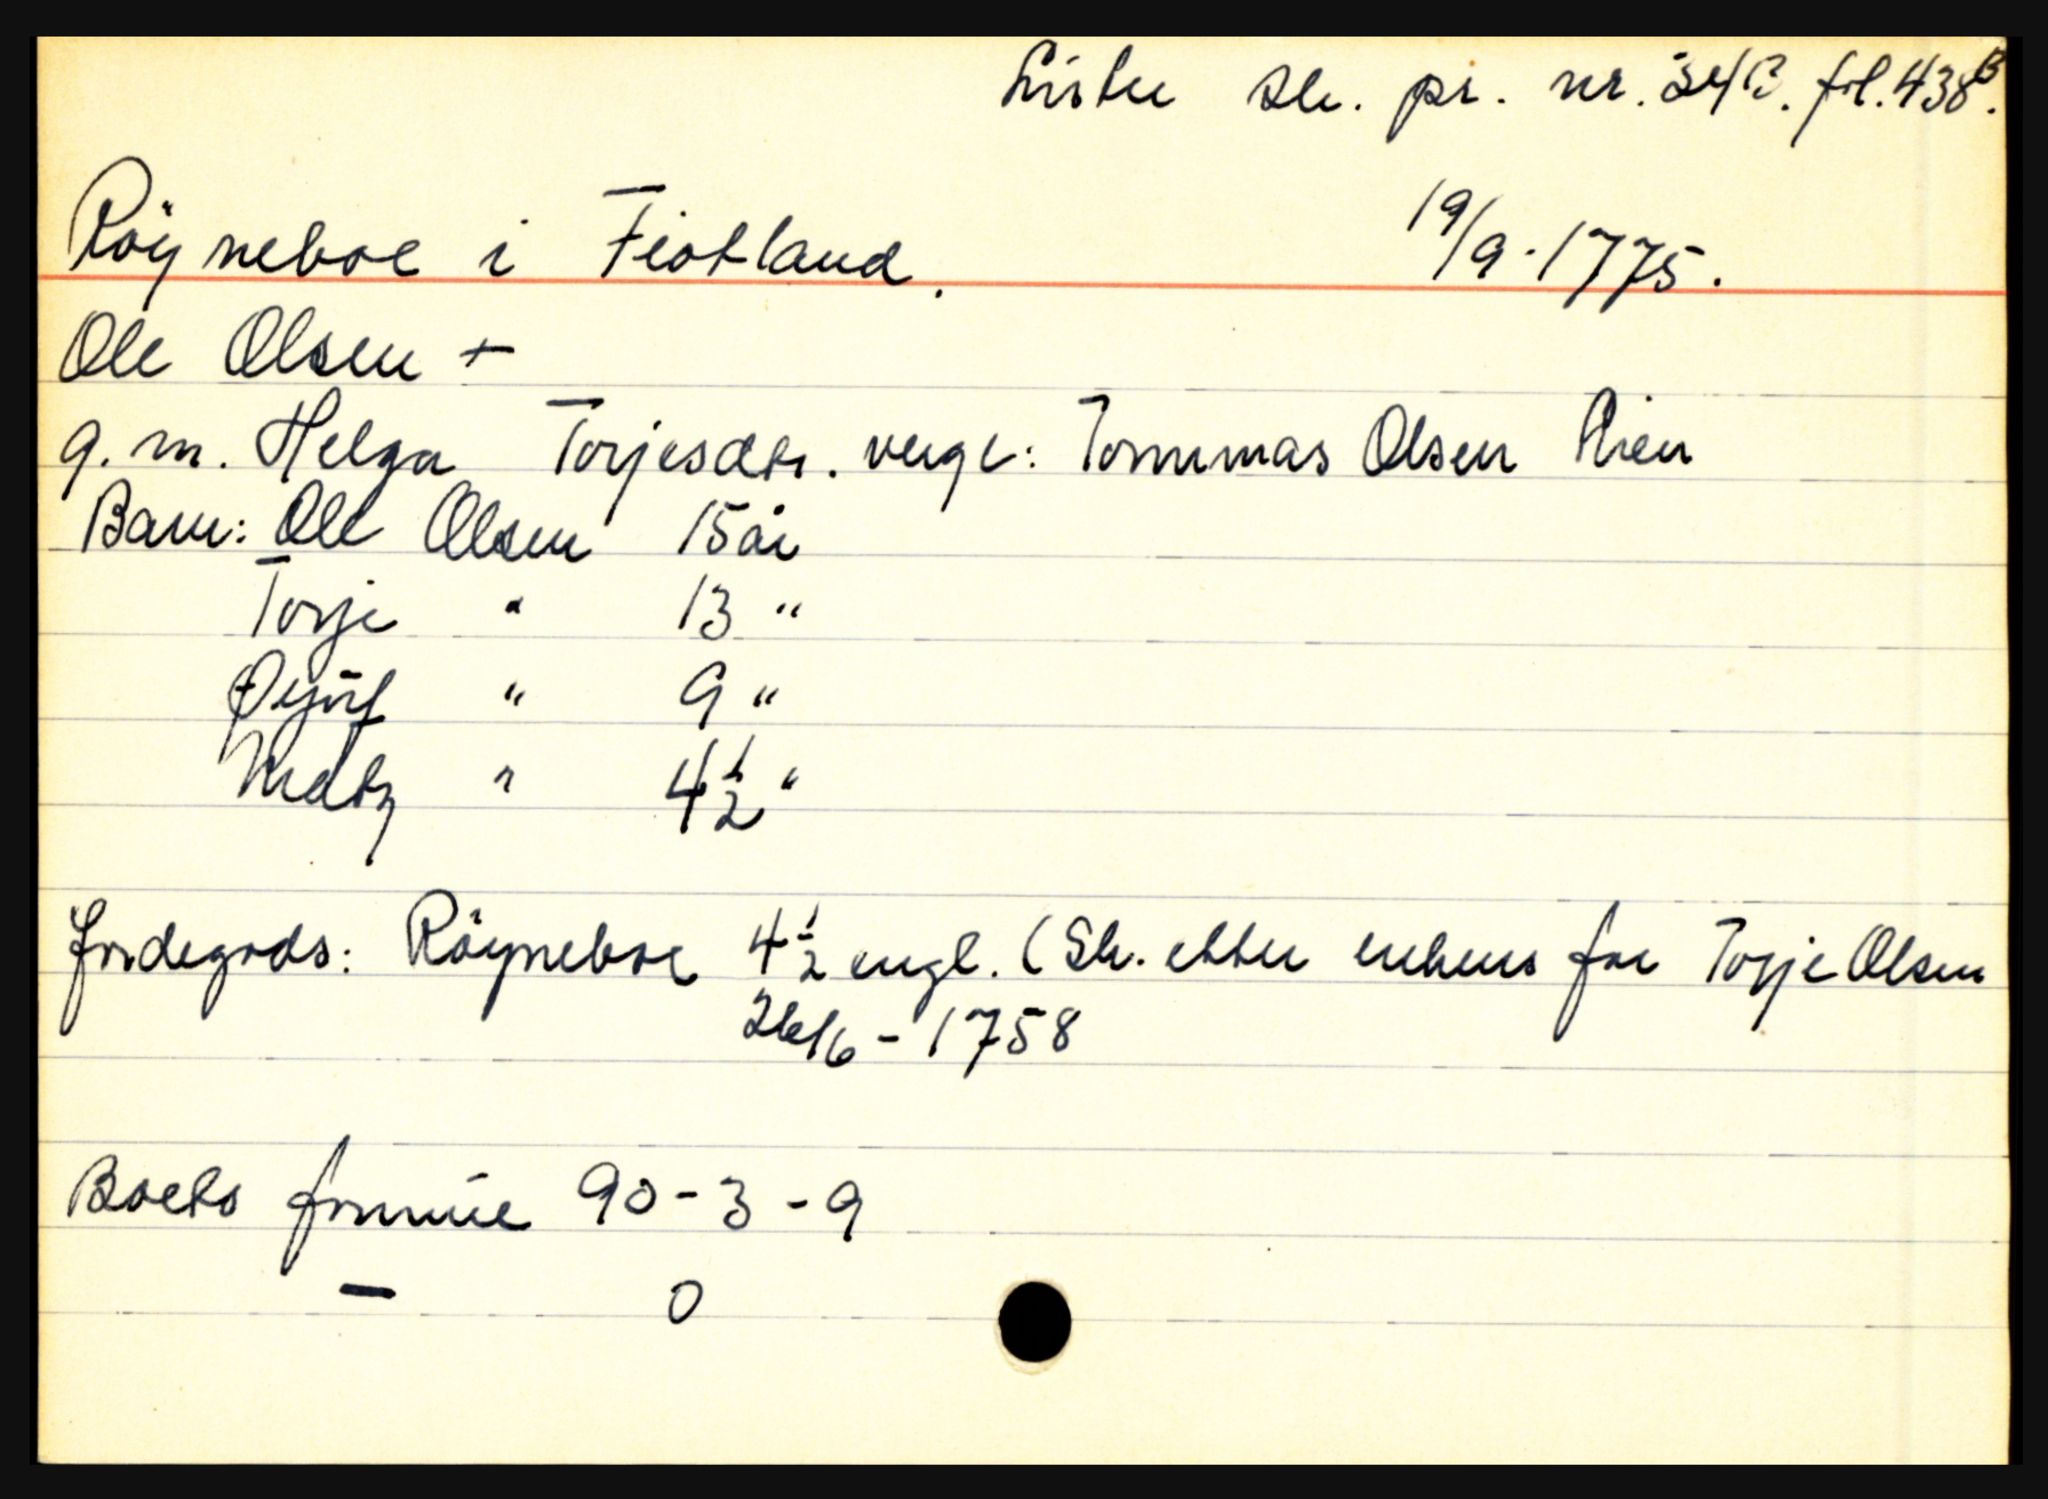 Lister sk. pr. nr. 34B. fol. 438B.
Röyneboe i Fiotland.
19/9-1775.
Ole Olsen +
g. m. Helga Torjesdtr. verge: Tommas Olsen
Barn: Ole Olsen 15 år
Torje " 13 "
" 9 "
Matz " 4 1/2 "
Jordegods: Röyneboe 4 1/2 engl. (Sk. etter enkens far Torje Olsen
26/6-1758
Boets formue 90-3-9
— 0